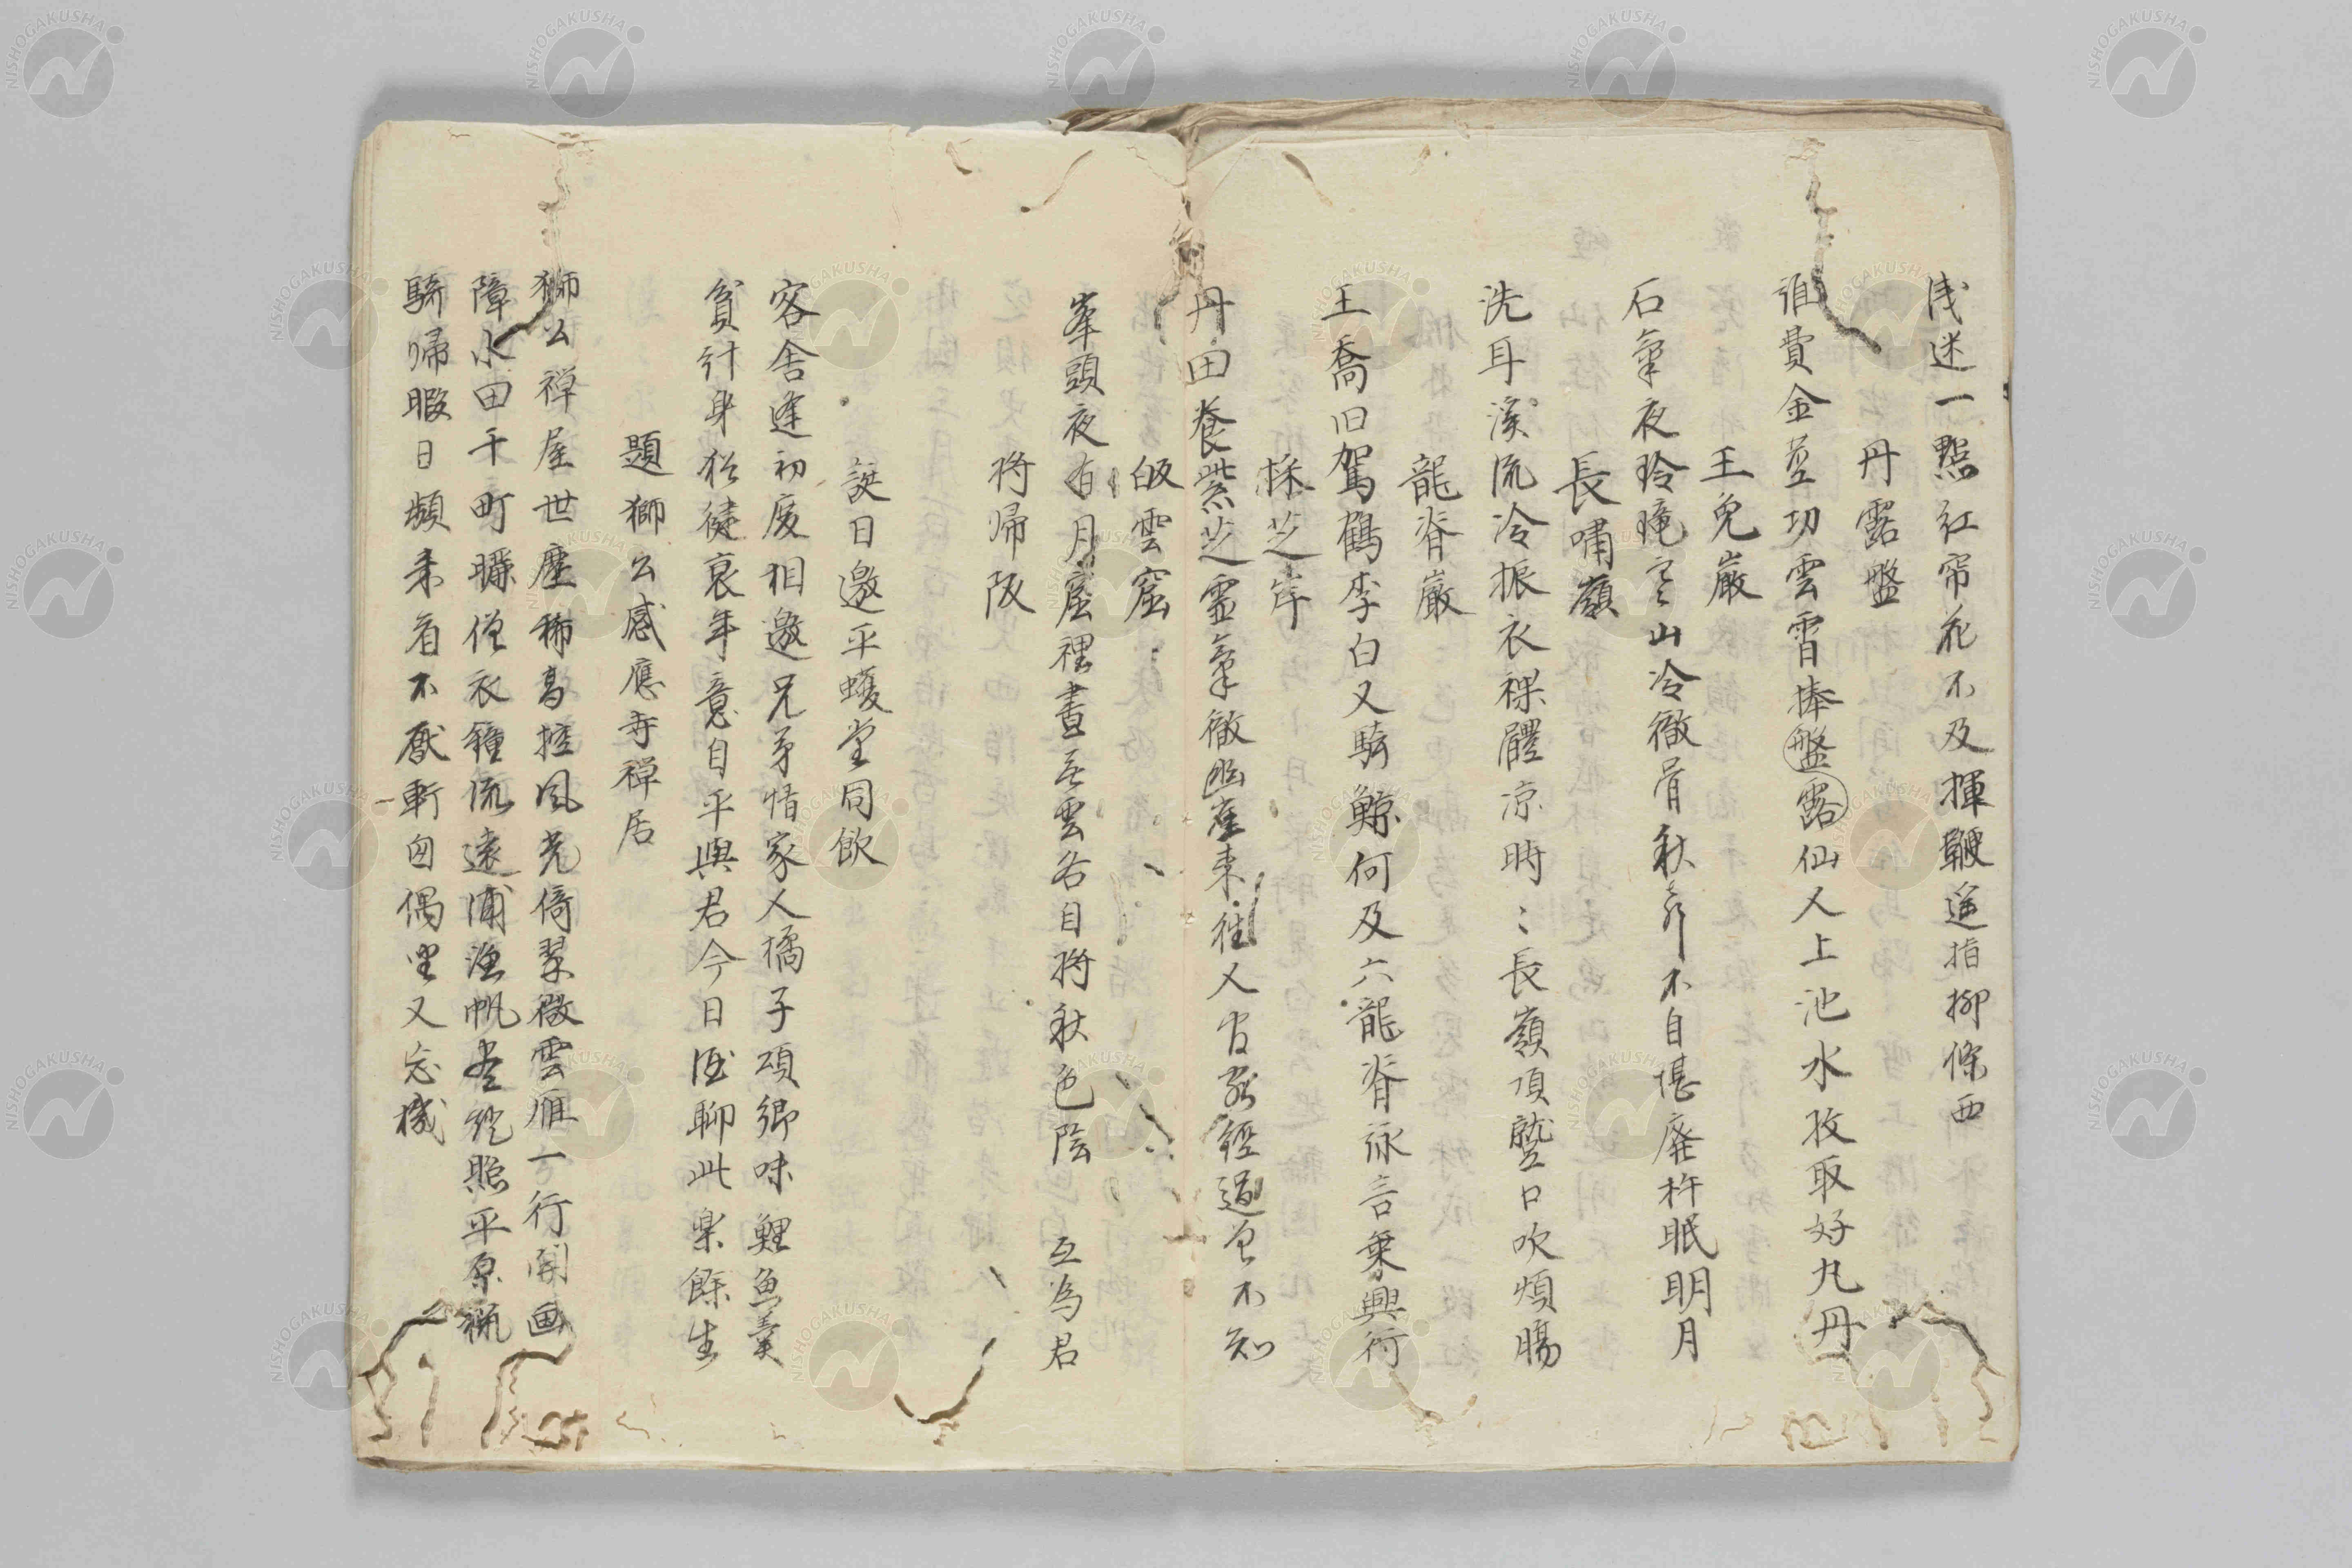 浅迷一點紅帘花不及揮鞭遥指柳條西
丹露盤
誰費金莖功雲霄捧盤露仙人上池水收取好丸丹
玉兔巌
石氣夜玲瓏空山冷徹骨秋声不自堪厳杵眠明月
長嘯嶺
洗耳溪流冷振衣裸體凉時〻長嶺頂鼓口吹煩腸
龍脊巌
王喬旧駕鶴李白又騎鯨何及六龍脊詠言乗興行
採芝岸
丹田養紫芝霊氣徹幽崖来往人皆経過不知
皈雲窟
峯頭夜有月窟裡晝無雲各自将秋色陰 互為君
将帰阪
誕日邀平蠖堂同飲
客舎逢初度相邀兄弟情家人橘子頌郷味鯉魚羹
貧計身猶健衰年意自平與君今日酒聊此楽餘生
題獅公感應寺禅居
獅公禅屋世塵稀高控風光倚翠微雲雁一行開画
障水田千町曝僧衣鐘流遠浦漁帆照平原猟
騎帰暇日頻来看不厭斬匈偶坐又忘機
NISHOGAKUSHA